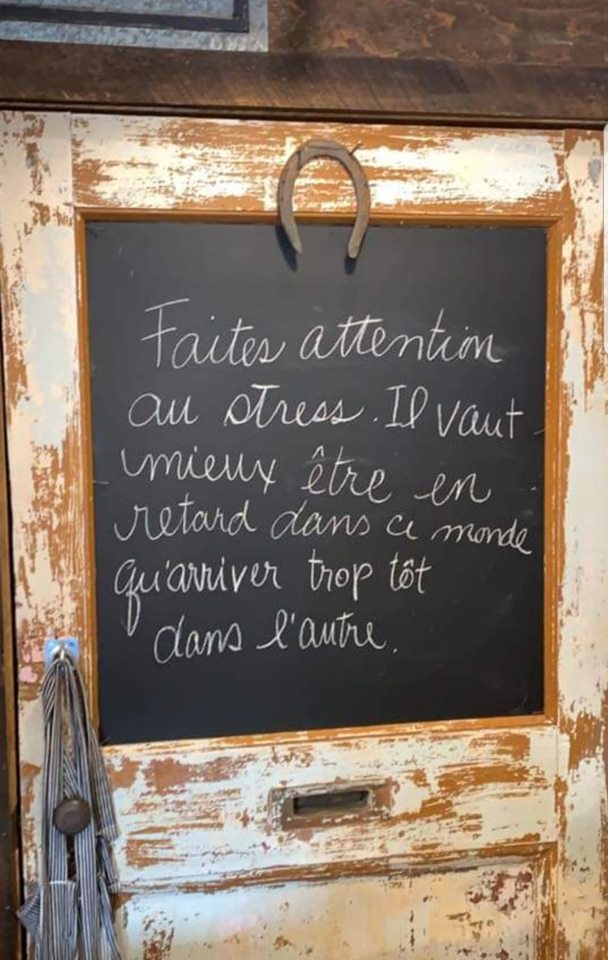 Faites attention
au stress. Il vaut
mieux être en
retard dans ce monde
qu'arriver trop tôt
dans l'autre.